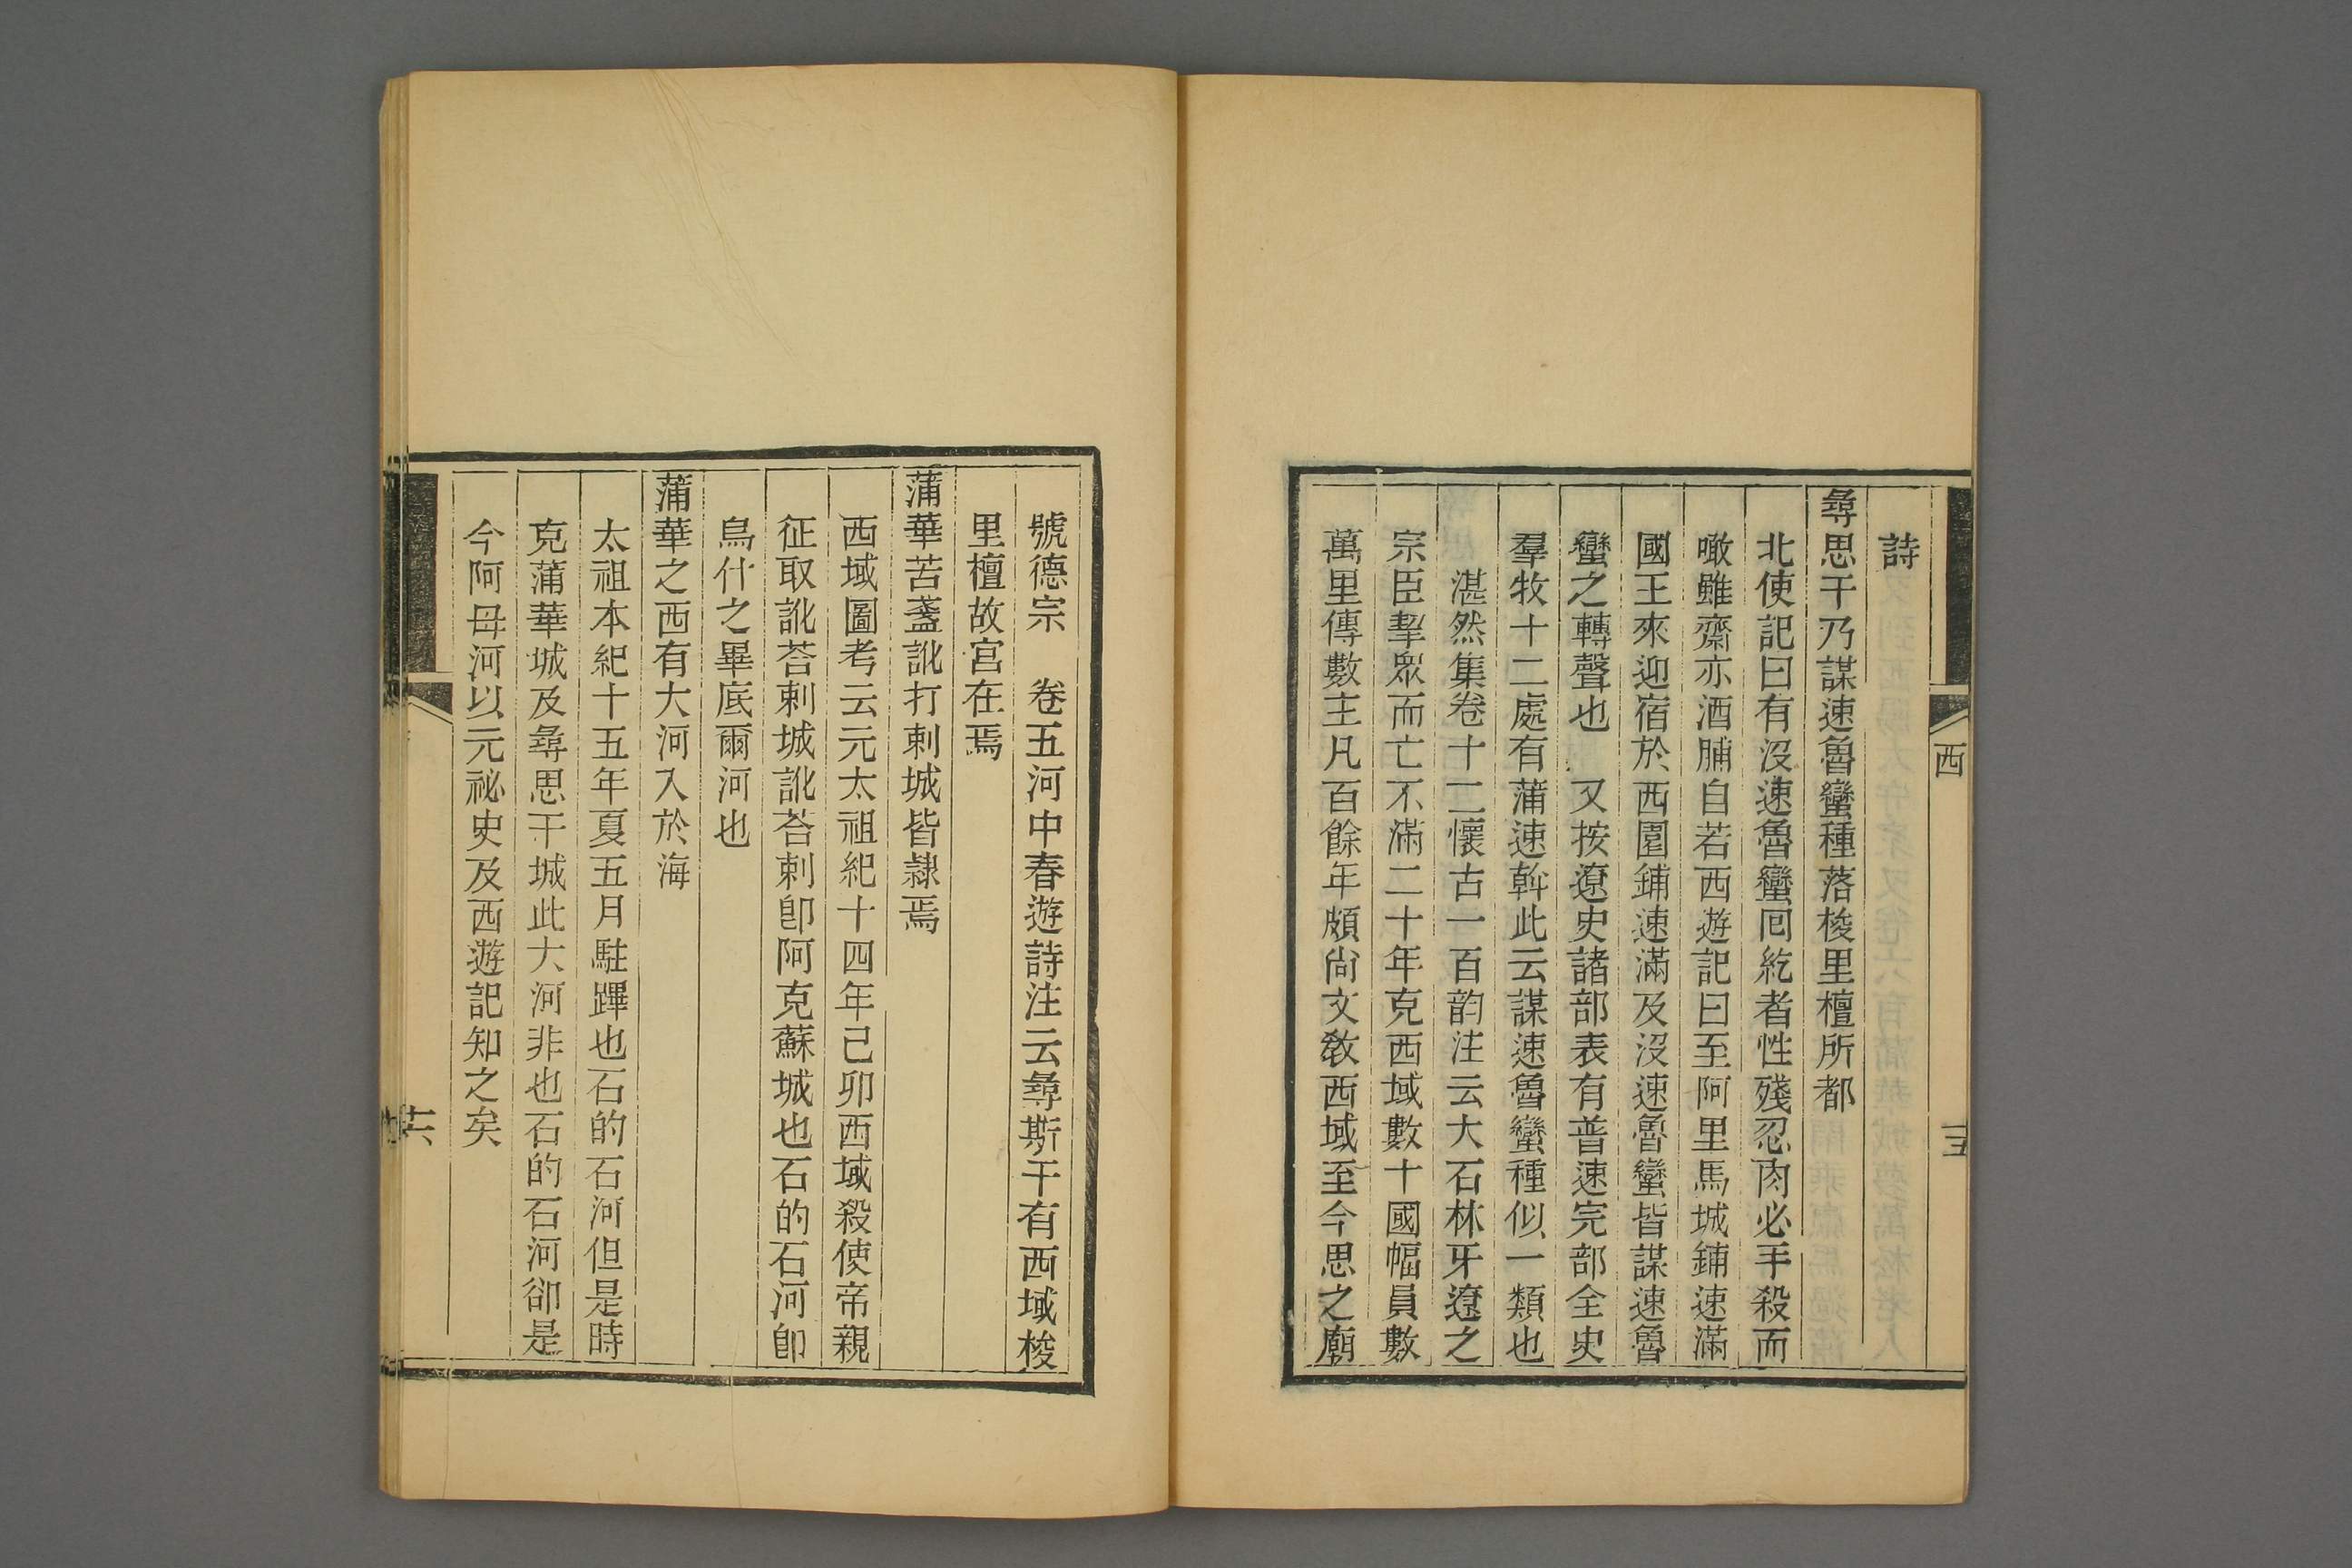 西
五
詩
尋思干乃謀速魯蠻種落梭里檀所都
北使記曰有沒速魯蠻囘紇者性殘忍肉必手殺而
噉雖齋亦酒脯自若西遊記曰至阿里馬城鋪速滿
國王來迎宿於西園鋪速滿及沒速魯蠻皆謀速魯
蠻之轉聲也　又按遼史諸部表有普速完部全史
羣牧十二處有蒲速斡此云謀速魯蠻種似一類也
湛然集卷十二懷古一百韵注云大石林牙遼之
宗臣挈眾而亡不滿二十年克西域數十國幅員數
萬里傳數主凡百餘年頗尙文敎西域至今思之廟
號德宗　卷五河中春遊詩注云尋斯干有西域梭
里檀故宮在焉
蒲華苦盞訛打剌城皆隸焉
西域圖考云元太祖紀十四年己卯西域殺使帝親
征取訛荅剌城訛荅剌卽阿克蘇城也石的石河卽
烏什之畢底爾河也
蒲華之西有大河入於海
太祖本紀十五年夏五月駐蹕也石的石河但是時
克蒲華城及尋思干城此大河非也石的石河卻是
今阿母河以元祕史及西遊記知之矣
六